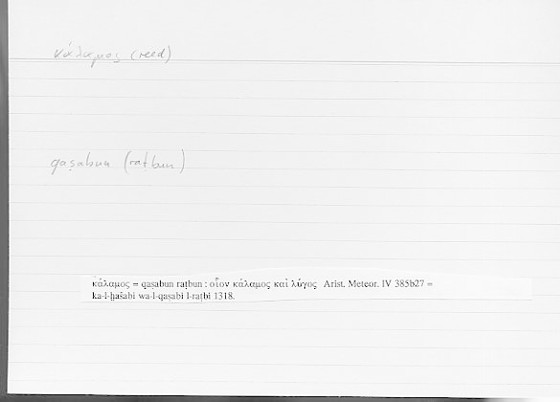 κάλαμος (reed)
qaṣabun (raṭbun)
κάλαμος = qaṣabun raṭbun : οἷον κάλαμος καὶ λύγος Arist. Meteor. IV 385b27 =
ka-l-ḫašabi wa-l-qaṣabi l-raṭbi 1318.